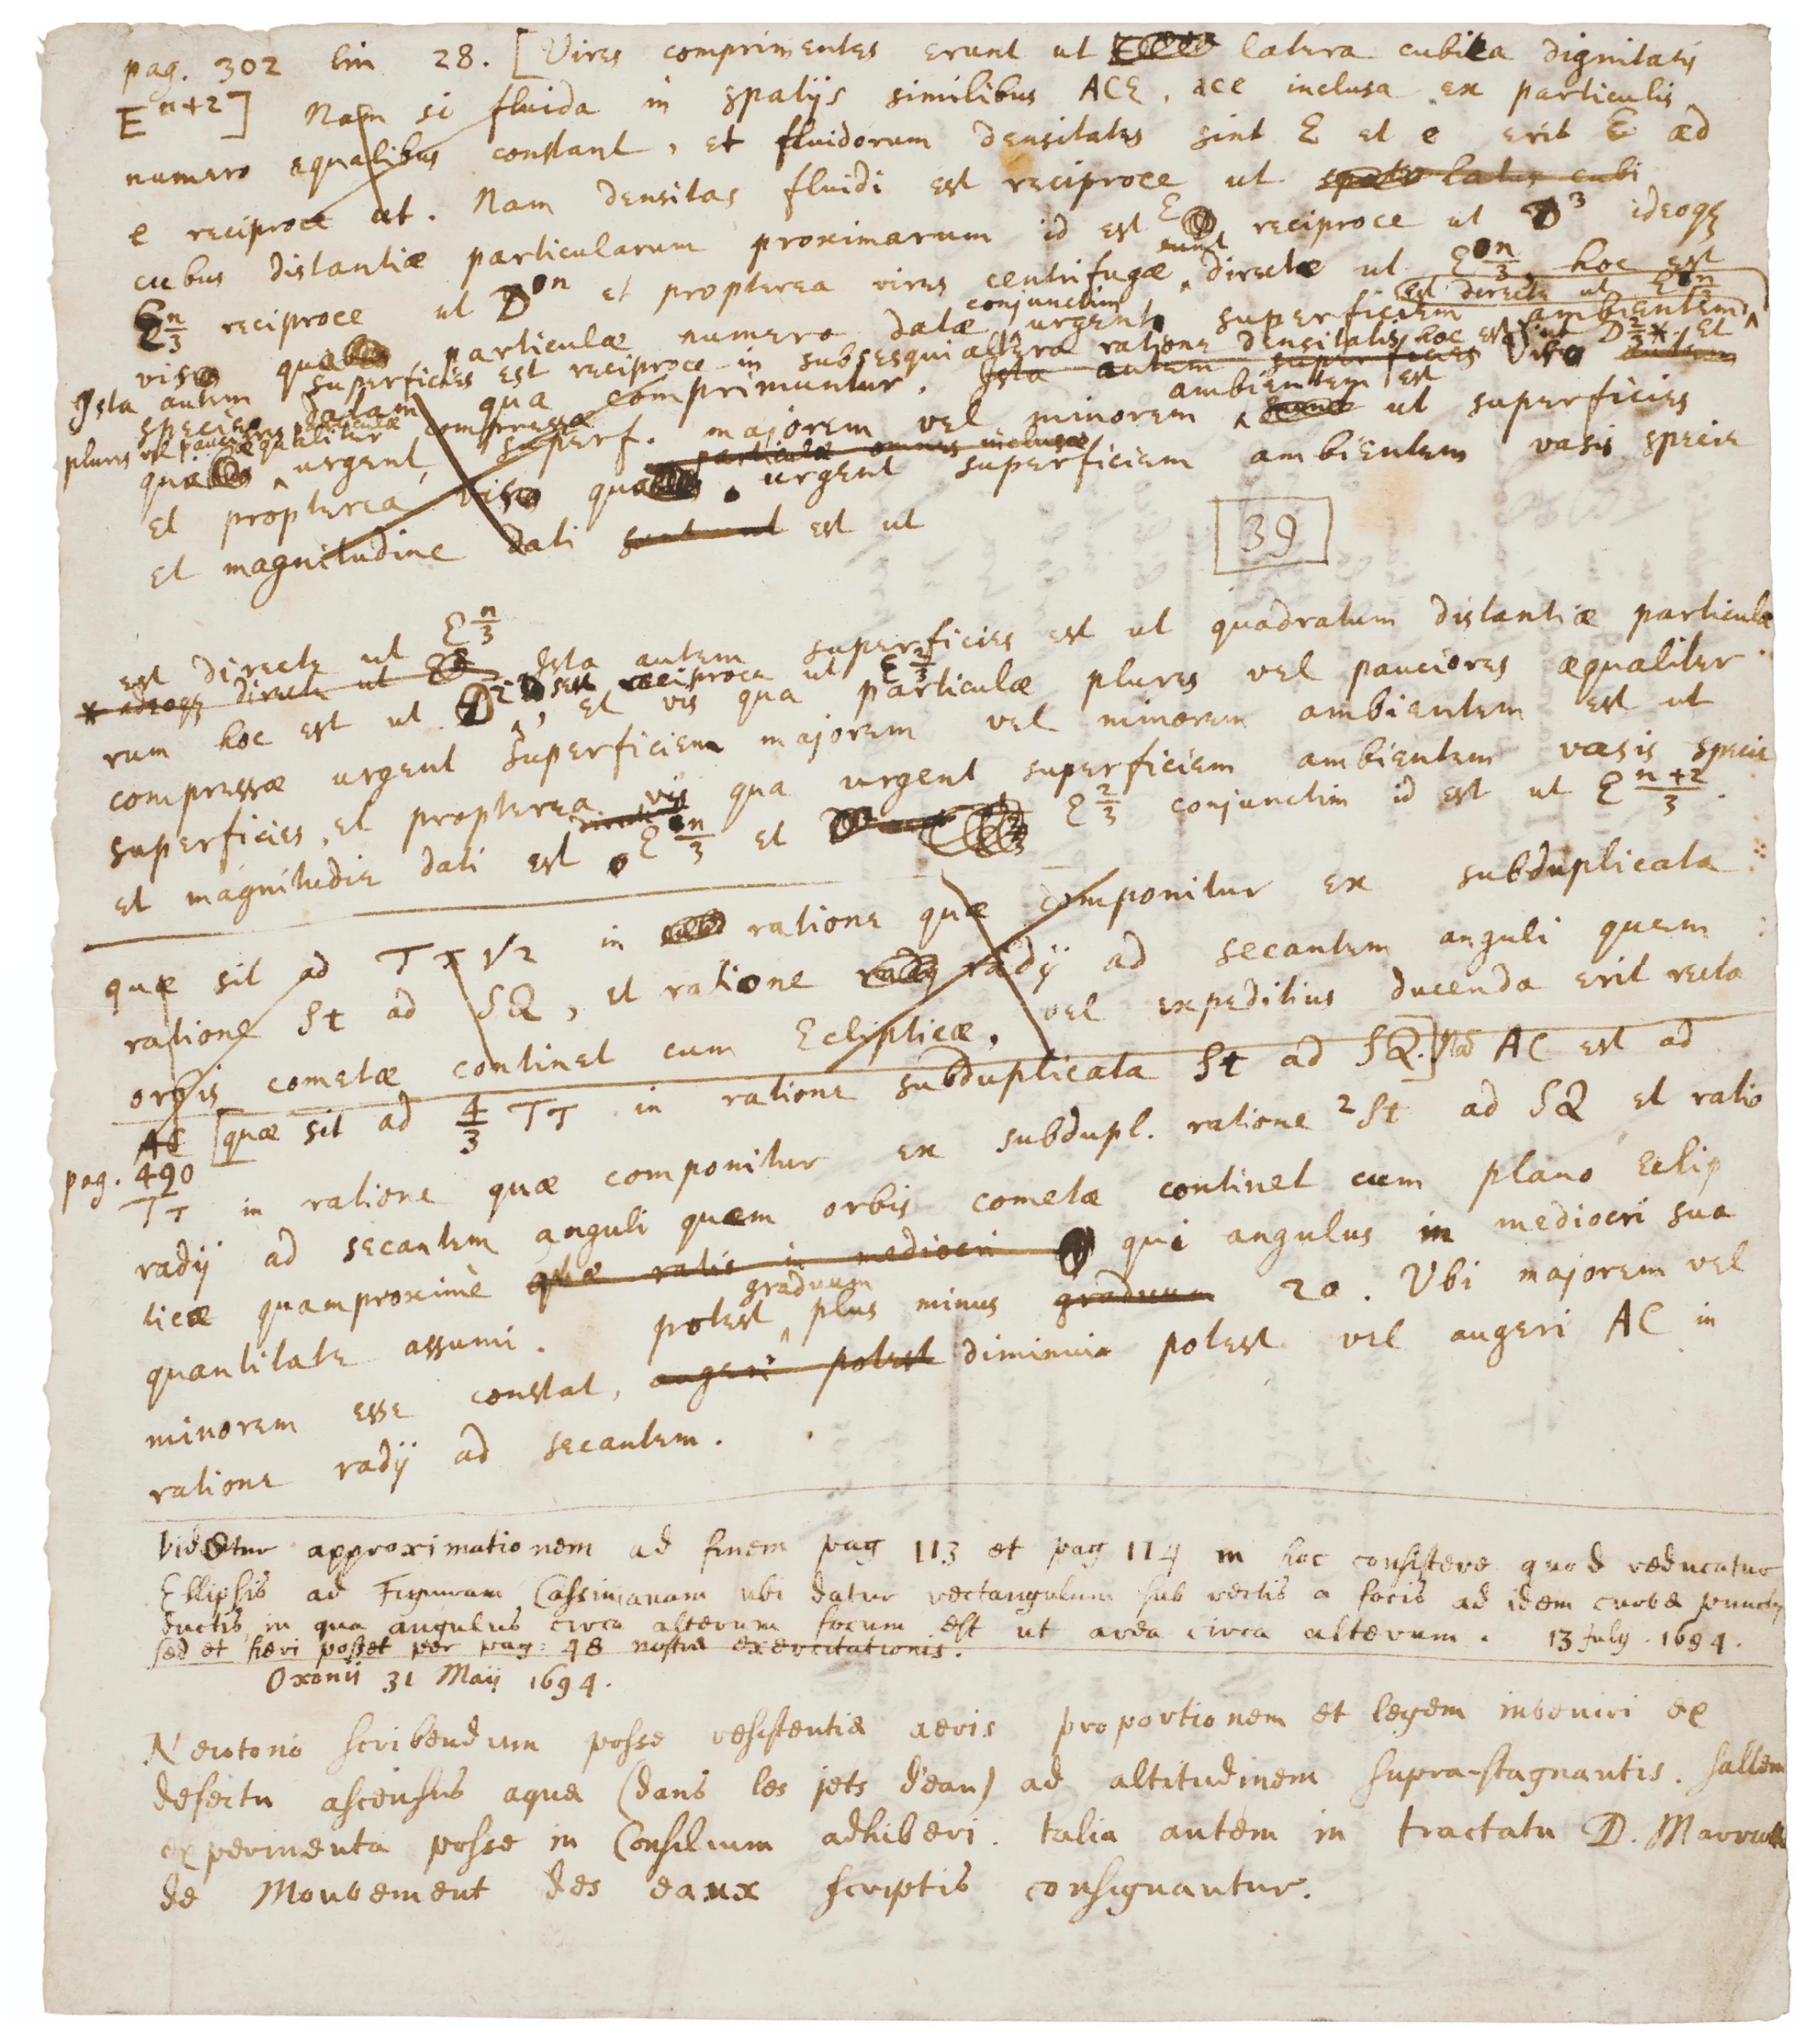 pag. 302 lin 28. [Vires comprimentes erunt ut latera cubica dignitatis
E^{n+2}] Nam si fluida in spatijs similibus ACE, ace inclusa ex particulis
numero aequalibus constant, et fluidorum densitates sint E et e erit E ad
e reciproce ut. Nam densitas fluidi est reciproce ut spatio latus cubi
cubus distantiæ particularum proximarum id est E reciproce ut D^3 ideoq3
E^{n/3} reciproce ut D^n et propterea vires centrifugæ sunt directe ut E^{n/3}, hoc est
est directe ut E^{n/3}
vis qua particulæ numero datæ conjunctim urgent superficiem ambientem
Ista autem superficies est reciproce in subsesquialtera ratione densitatis, hoc est ut D^{2/3} * Et
specie datam qua comprimuntur. Ista autem superficies Vis autem
plures vel pauciores particulæ æqualiter compressæ
qua urgent superf. majorem vel minorem ambientem est ut superficies
particulæ omnes inclusæ
et propterea vis qua urgent superficiem ambientem vasis specie
et magnitudine dati sunt ut est ut
39
est directe ut E^{n/3}
* adeoq3 directe ut Ista autem superficies est ut quadratum distantiæ particula
rum hoc est ut D^2 seu reciproce ut E^{2/3}, et vis qua particulæ plures vel pauciores æqualiter
compressæ urgent superficiem majorem vel minorem ambientem est ut
superficies, et propterea vis qua urgent superficiem ambientem vasis specie
et magnitudie dati est E^{n/3} et E^{2/3} conjunctim id est ut E^{\frac{n+2}{3}}.
quæ sit ad Tτ√2 in ratione quæ componitur ex subduplicata
ratione St ad SQ, et ratione radij radij ad secantem anguli quem
orbis cometæ continet cum Eclipticæ. vel expeditius ducenda erit recta
AC [quæ sit ad 4/3 Tτ in ratione subduplicata St ad SQ.] Nam AC est ad
pag. 490
Tτ in ratione quæ componitur ex subdupl. ratione 2St ad SQ et ratio
radij ad secantem anguli quem orbis cometæ continet cum plano Eclip
ticæ quamproximè quæ ratio in mediocri qui angulus in mediocri sua
quantitate assumi potest graduum plus minus graduum 20. Ubi majorem vel
minorem esse constat, augeri potest diminui potest vel augeri AC in
ratione radij ad secantem.
Videtur approximationem ad finem pag 113 et pag 114 in hoc consistere quod reducatur
Ellipsis ad Figuram Cassinianam ubi datur rectangulum sub rectis a focis ad idem curvæ punctum
ductis, in qua angulus circa alterum focum est ut area circa alterum. 13 July. 1694.
sed et fieri posset per pag: 48 nostræ exercitationis.
Oxonii 31 Maij 1694.
Newtono scribendum posse resistentiæ aeris proportionem et legem inveniri ex
defectu ascensus aquæ (dans les jets d'eau) ad altitudinem supra-stagnantis. saltem
experimenta posse in Consilium adhiberi. talia autem in tractatu D. Marriotte
de Mouvement des eaux scriptis consignantur.